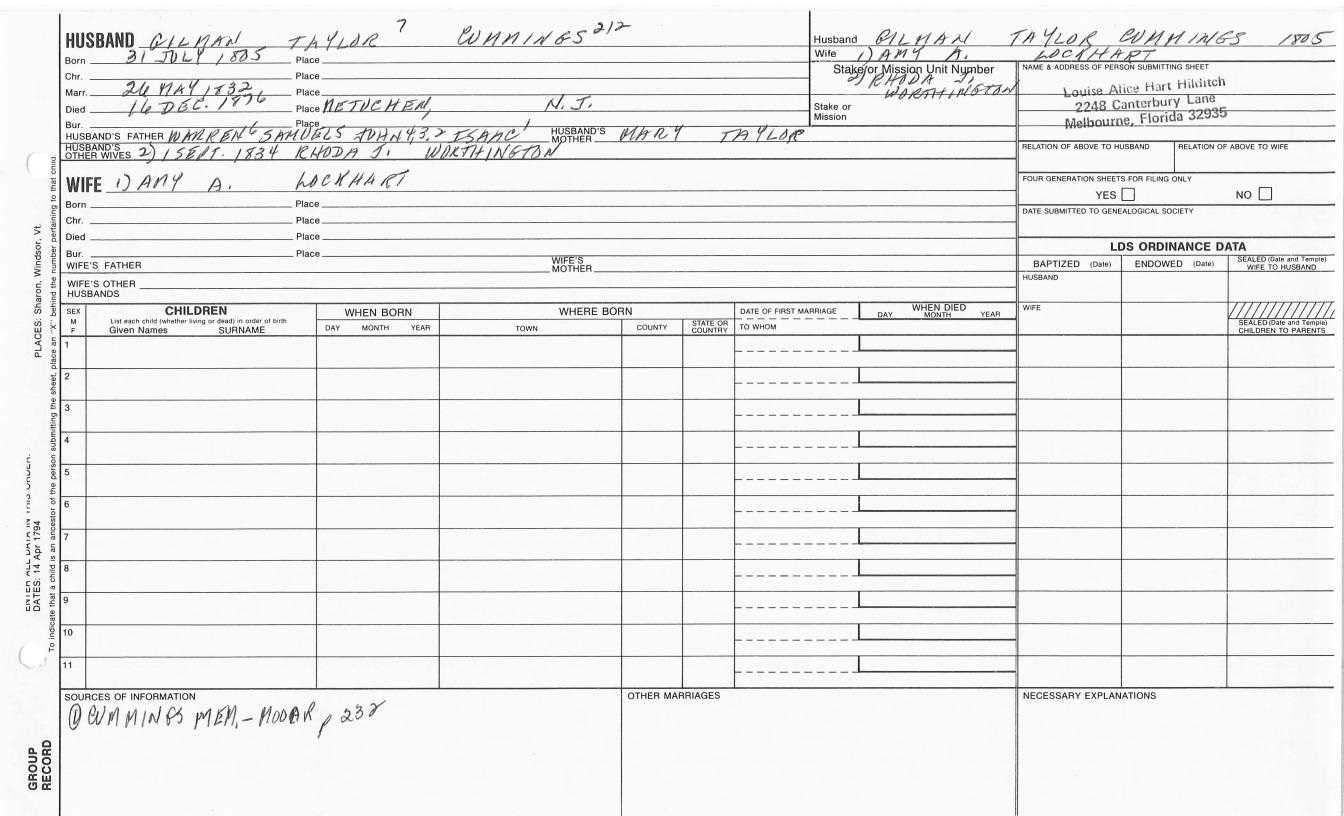 HUSBAND GILMAN TAYLOR 7 CUMMINGS 212
Born 31 JULY 1805 Place
Chr. Place
Marr. 26 MAY 1832 Place
Died 16 DEC. 1876 Place METUCHEN, N.J.
Bur. Place
HUSBAND'S FATHER WARREN 6 SAMUEL 5 JOHN 4,3,2 ISAAC 1 HUSBAND'S MOTHER MARY TAYLOR
HUSBAND'S OTHER WIVES 2) 1 SEPT. 1834 RHODA J. WORTHINGTON
WIFE 1) AMY A. LOCKHART
Born Place
Chr. Place
Died Place
Bur. Place
WIFE'S FATHER WIFE'S MOTHER
WIFE'S OTHER HUSBANDS
Husband GILMAN TAYLOR CUMMINGS 1805
Wife 1) AMY A. LOCKHART
Stake or Mission Unit Number
2) RHODA J. WORTHINGTON
Stake or Mission
NAME & ADDRESS OF PERSON SUBMITTING SHEET
Louise Alice Hart Hilditch
2248 Canterbury Lane
Melbourne, Florida 32935
RELATION OF ABOVE TO HUSBAND RELATION OF ABOVE TO WIFE
FOUR GENERATION SHEETS FOR FILING ONLY
YES NO
DATE SUBMITTED TO GENEALOGICAL SOCIETY
LDS ORDINANCE DATA
BAPTIZED (Date) ENDOWED (Date) SEALED (Date and Temple) WIFE TO HUSBAND
HUSBAND
WIFE
SEALED (Date and Temple) CHILDREN TO PARENTS
SEX M F
CHILDREN
List each child (whether living or dead) in order of birth
Given Names SURNAME
WHEN BORN
DAY MONTH YEAR
WHERE BORN
TOWN COUNTY STATE OR COUNTRY
DATE OF FIRST MARRIAGE
TO WHOM
WHEN DIED
DAY MONTH YEAR
1
2
3
4
5
6
7
8
9
10
11
SOURCES OF INFORMATION
① CUMMINGS MEM. - MOOAR p 232
OTHER MARRIAGES
NECESSARY EXPLANATIONS
PLACES: Sharon, Windsor, Vt.
ENTER ALL DATA IN THIS ORDER:
DATES: 14 Apr 1794
To indicate that a child is an ancestor of the person submitting the sheet, place an "X" behind the number pertaining to that child.
GROUP RECORD